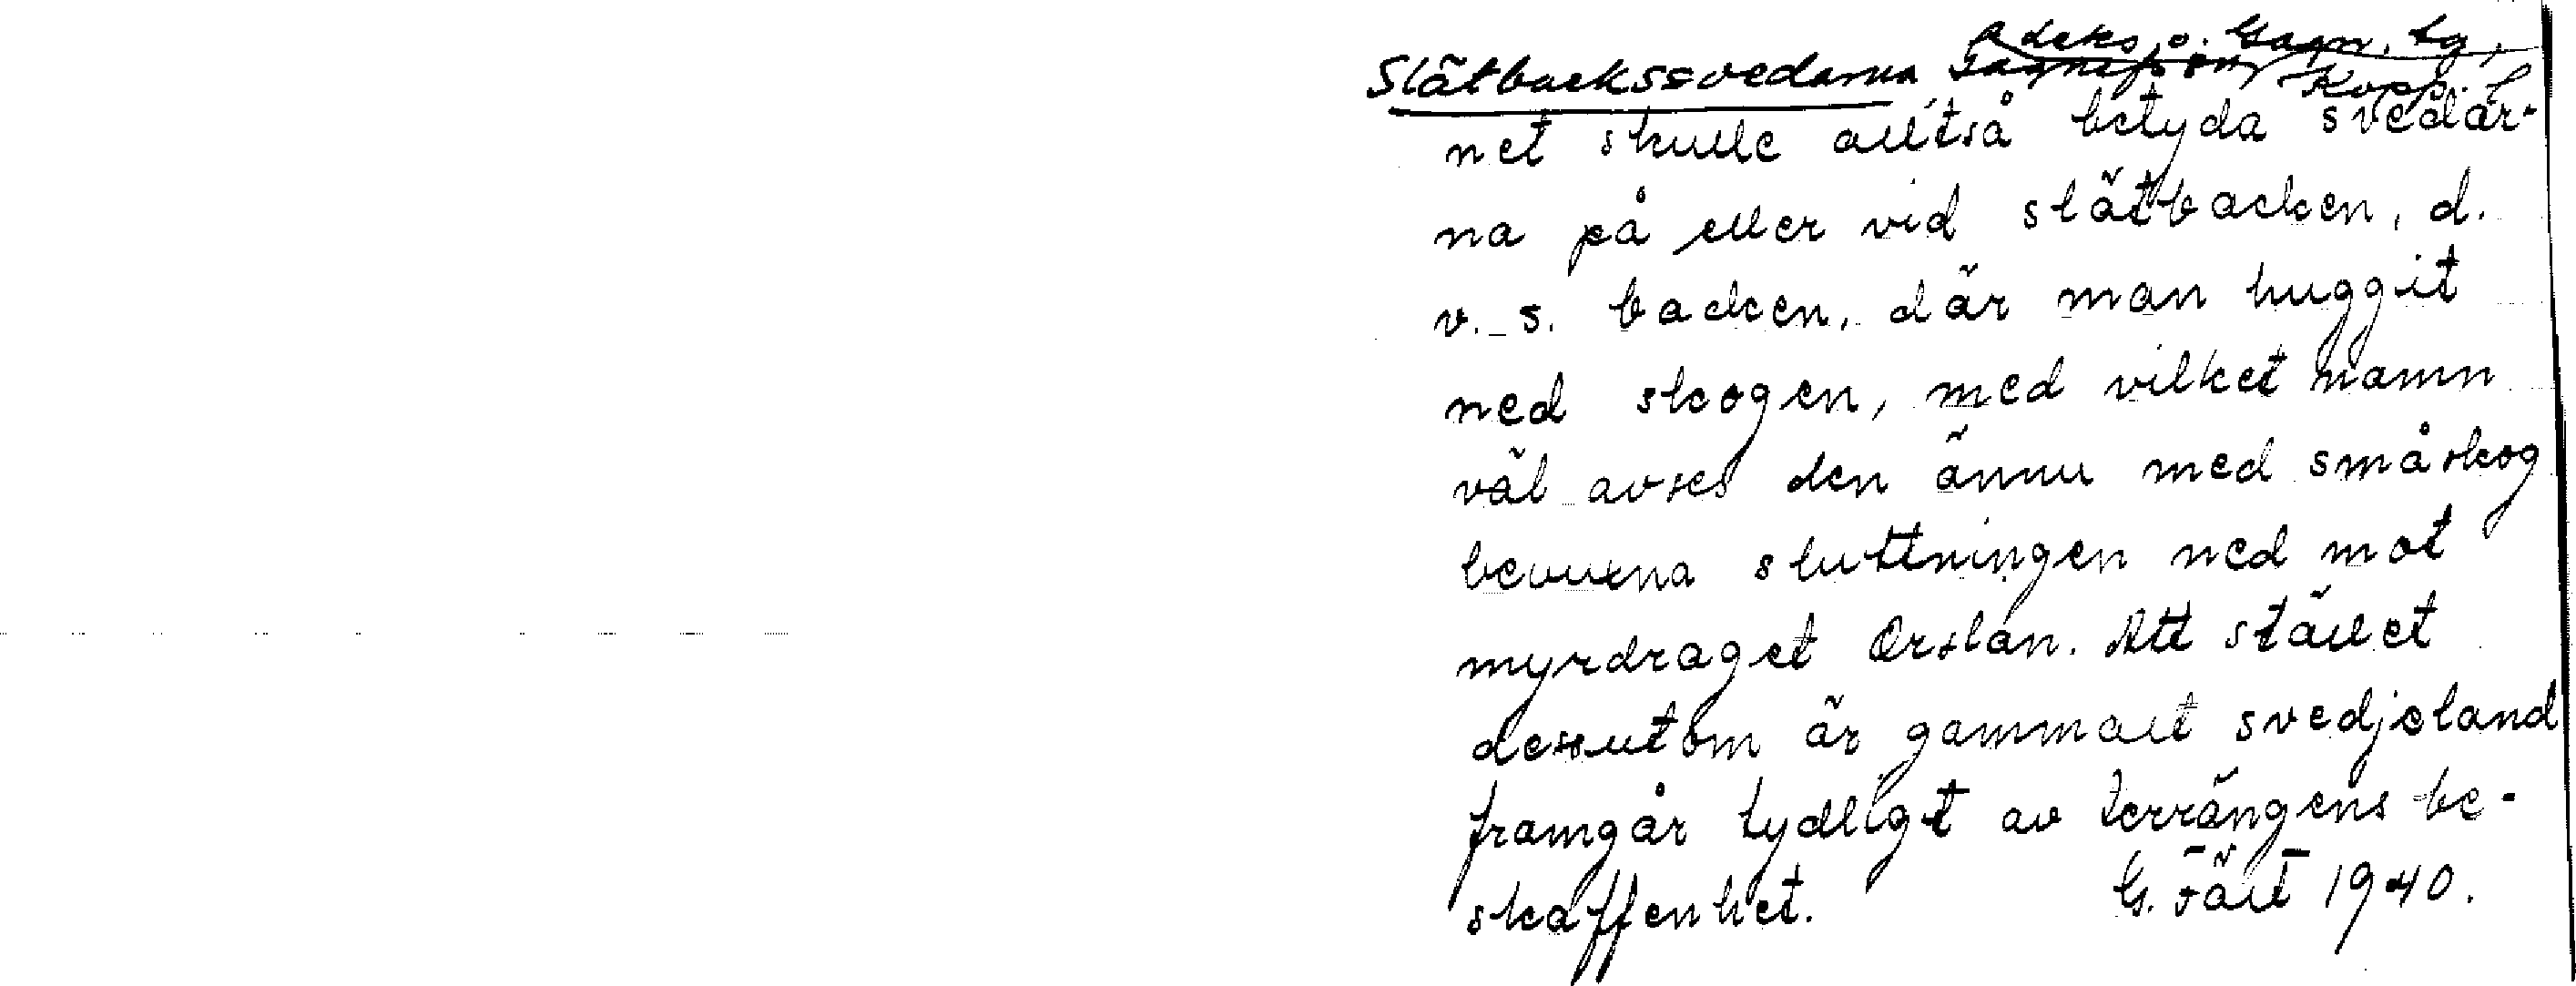 Slätbackssvedarna, Gagnefs sn, Kopp. l.
net skulle alltså betyda svedar-
na på eller vid slätbacken, d.
v. s. backen, där man huggit
ned skogen, med vilket namn
väl avses den ännu med småskog
bevuxna sluttningen ned mot
myrdraget Orslån. Att stället
dessutom är gammalt svedjeland
framgår tydligt av terrängens be-
skaffenhet. G. Fält 1940.